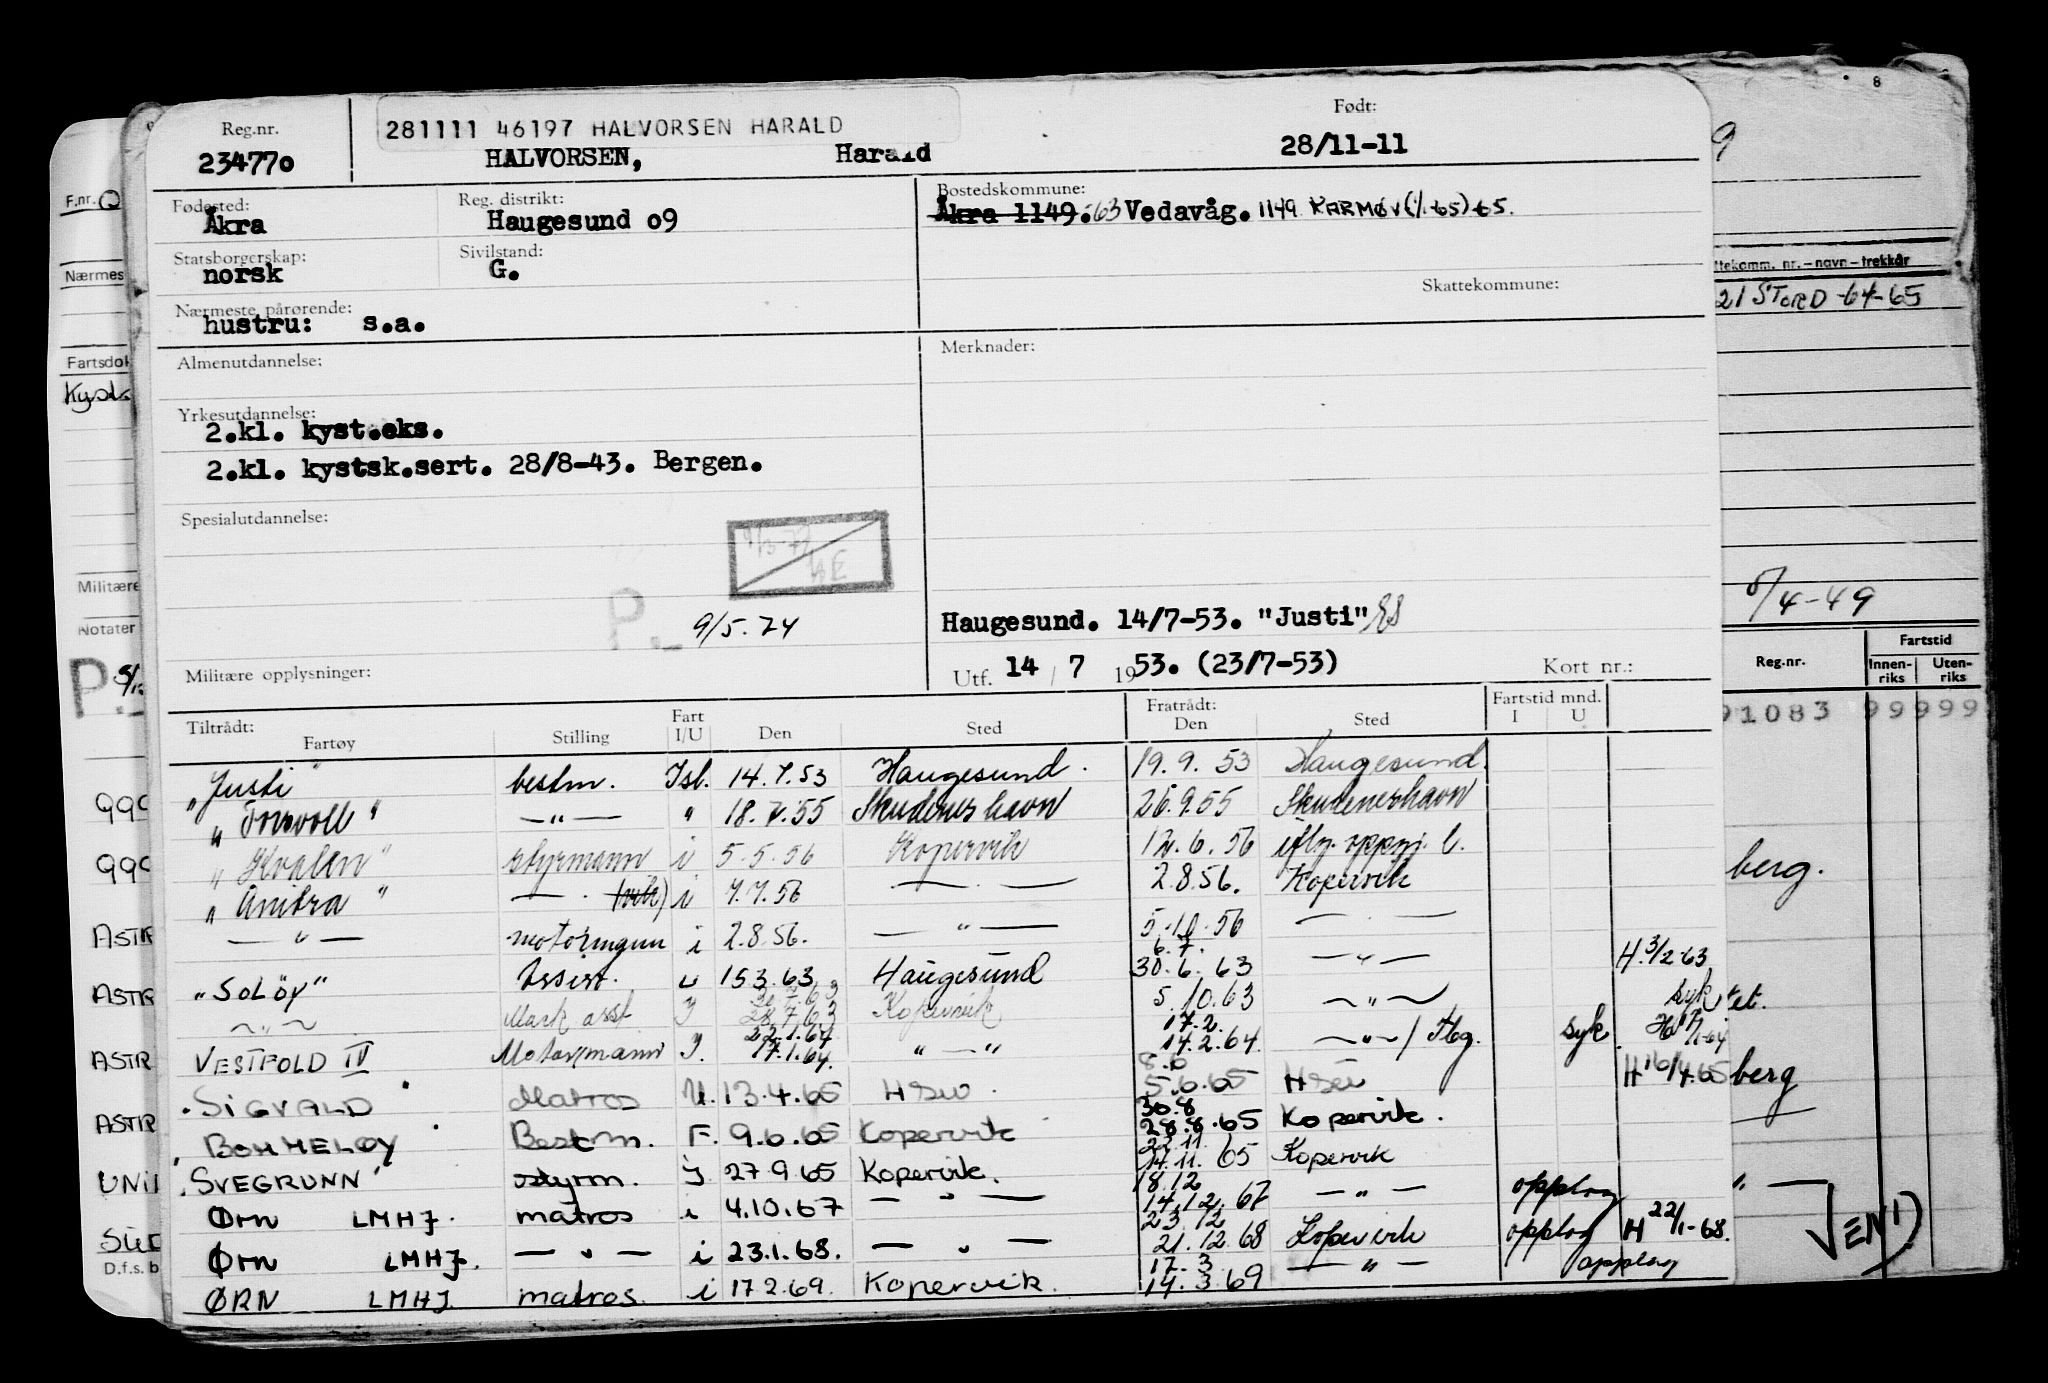 281111 46197 HALVORSEN HARALD
Reg.nr. 234770
HALVORSEN, Harald
Født: 28/11-11
Fødested: Åkra
Reg. distrikt: Haugesund 09
Bostedskommune: Åkra 1149.-63 Vedavåg. 1149 KARMØY (1/1-65)-65.
Statsborgerskap: norsk
Sivilstand: G.
Skattekommune:
Nærmeste pårørende: hustru: s.a.
Almenutdannelse:
Merknader:
Yrkesutdannelse:
2.kl. kyst.eks.
2.kl. kystsk.sert. 28/8-43. Bergen.
Spesialutdannelse:
P.
9/5.74
Haugesund. 14/7-53. "Justi"
Militære opplysninger:
Utf. 14 / 7 1953. (23/7-53)
Kort nr.:
Tiltrådt: Fartøy Stilling Fart I/U Den Sted Fratrådt: Den Sted Fartstid mnd. I U
"Justi" bestm. Isl. 14.7.53 Haugesund. 19.9.53 Haugesund.
" — " — " 18.7.55 Skudeneshavn 26.9.55 Skudeneshavn
"Kvalen" styrmann i 5.5.56 Kopervik 12.6.56
"Anitra" — . — i 7.7.56 — . — 2.8.56. Kopervik
— " — motormann i 2.8.56. — " — 5.10.56 — . —
"SOLÖY" 15.3.63 Haugesund 6.7. 30.6.63 — " — H.3/2-63
— " — Mask asst I 28.7.63 Kopervik 5.10.63 — " — syk
VESTFOLD IV Motormann I. 22.1.64 17.1.64 " — " 17.2. 14.2.64 — " — / Tbg. syk. 1-64
"SIGVALD" Matros U. 13.4.65 HSU. 8.6 5.6.65 HSU H 10/4-65
"BOMMELØY" Bestm. F. 9.6.65 Kopervik 30.8 28.8.65 Kopervik.
"SVEGRUNN" styrm. I. 27.9.65 Kopervik. 22.11. 14.11.65 Kopervik
Ørn LMHJ. matros i 4.10.67 — " — 18.12 14.12.67 — " — opplag
Ørn LMHJ. — " — i 23.1.68. — " — 23.12 21.12.68 Kopervik opplag H 22/1-68.
ØRN LMHJ. matros. i 17.2.69. Kopervik. 17.3 14.3.69 — " — opplag
F.nr.
Nærmes
Fartsdok
Kyst
Militære
Notater
P.
99
99
ASTR
ASTR
ASTR
ASTR
UNI
D.f.s. b
8
9
ttekomm. nr. – navn – trekkår
21 STORD -64-65
/4-49
Reg.nr. Fartstid Innenriks Utenriks
91083 99999
berg.
et.
berg
" —
VEND